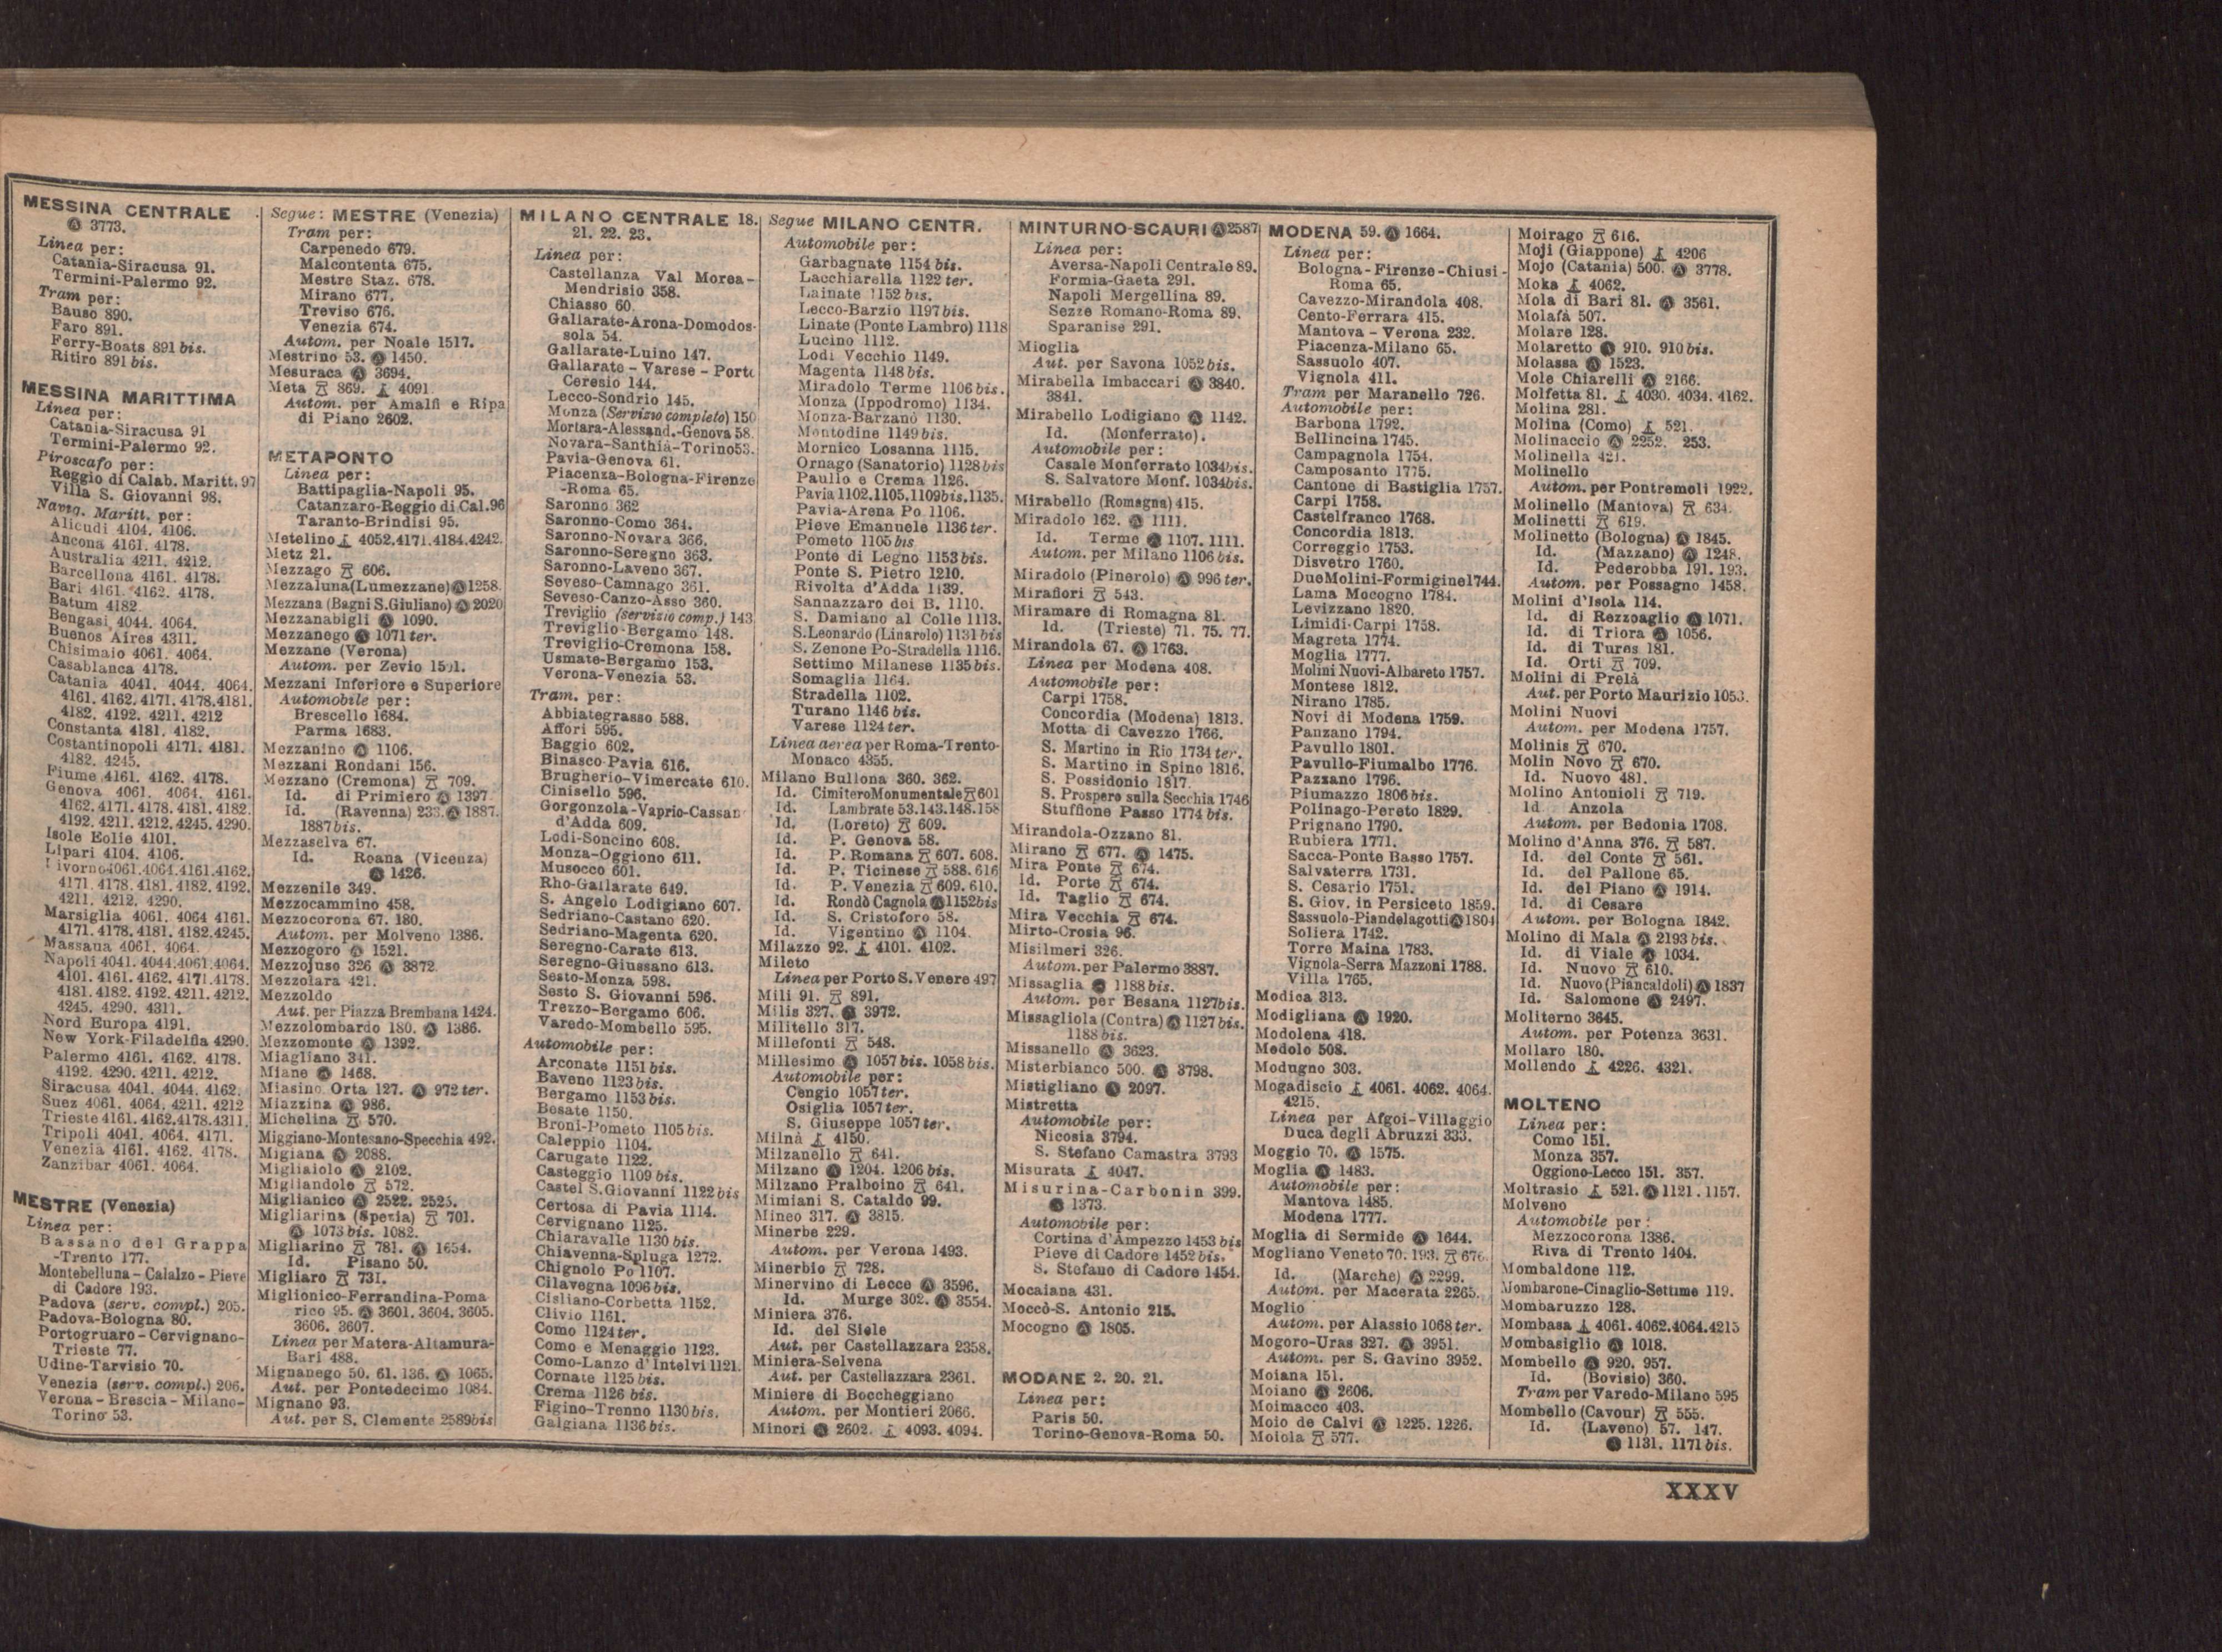 MESSINA CENTRALE
Ⓐ 3773.
Linea per:
Catania-Siracusa 91.
Termini-Palermo 92.
Tram per:
Bauso 890.
Faro 891.
Ferry-Boats 891 bis.
Ritiro 891 bis.
MESSINA MARITTIMA
Linea per:
Catania-Siracusa 91
Termini-Palermo 92.
Piroscafo per:
Reggio di Calab. Maritt. 97
Villa S. Giovanni 98.
Navig. Maritt. per:
Alicudi 4104. 4106.
Ancona 4161. 4178.
Australia 4211. 4212.
Barcellona 4161. 4178.
Bari 4161. 4162. 4178.
Batum 4182
Bengasi 4044. 4064.
Buenos Aires 4311.
Chisimaio 4061. 4064.
Casablanca 4178.
Catania 4041. 4044. 4064.
4161. 4162. 4171. 4178. 4181.
4182. 4192. 4211. 4212
Constanta 4181. 4182.
Costantinopoli 4171. 4181.
4182. 4245.
Fiume 4161. 4162. 4178.
Genova 4061. 4064. 4161.
4162. 4171. 4178. 4181. 4182.
4192. 4211. 4212. 4245. 4290.
Isole Eolie 4101.
Lipari 4104. 4106.
Livorno 4061. 4064. 4161. 4162.
4171. 4178. 4181. 4182. 4192.
4211. 4212. 4290.
Marsiglia 4061. 4064 4161.
4171. 4178. 4181. 4182. 4245.
Massaua 4061. 4064.
Napoli 4041. 4044. 4061. 4064.
4101. 4161. 4162. 4171. 4178.
4181. 4182. 4192. 4211. 4212.
4245. 4290. 4311.
Nord Europa 4191.
New York-Filadelfia 4290.
Palermo 4161. 4162. 4178.
4192. 4290. 4211. 4212.
Siracusa 4041. 4044. 4162.
Suez 4061. 4064. 4211. 4212
Trieste 4161. 4162. 4178. 4311.
Tripoli 4041. 4064. 4171.
Venezia 4161. 4162. 4178.
Zanzibar 4061. 4064.
MESTRE (Venezia)
Linea per:
Bassano del Grappa
-Trento 177.
Montebelluna - Calalzo - Pieve
di Cadore 193.
Padova (serv. compl.) 205.
Padova-Bologna 80.
Portogruaro - Cervignano-
Trieste 77.
Udine-Tarvisio 70.
Venezia (serv. compl.) 206.
Verona - Brescia - Milano-
Torino 53.
Segue: MESTRE (Venezia)
Tram per:
Carpenedo 679.
Malcontenta 675.
Mestre Staz. 678.
Mirano 677.
Treviso 676.
Venezia 674.
Autom. per Noale 1517.
Mestrino 53. Ⓐ 1450.
Mesuraca Ⓐ 3694.
Meta 869. 4091
Autom. per Amalfi e Ripa
di Piano 2602.
METAPONTO
Linea per:
Battipaglia-Napoli 95.
Catanzaro-Reggio di Cal. 96
Taranto-Brindisi 95.
Metelino 4052. 4171. 4184. 4242.
Metz 21.
Mezzago 606.
Mezzaluna (Lumezzane) Ⓐ 1258.
Mezzana (Bagni S. Giuliano) Ⓐ 2020
Mezzanabigli Ⓐ 1090.
Mezzanego Ⓐ 1071 ter.
Mezzane (Verona)
Autom. per Zevio 1501.
Mezzani Inferiore e Superiore
Automobile per:
Brescello 1684.
Parma 1683.
Mezzanino Ⓐ 1106.
Mezzani Rondani 156.
Mezzano (Cremona) 709.
Id. di Primiero Ⓐ 1397
Id. (Ravenna) 233. Ⓐ 1887.
1887 bis.
Mezzaselva 67.
Id. Roana (Vicenza)
Ⓐ 1426.
Mezzenile 349.
Mezzocammino 458.
Mezzocorona 67. 180.
Autom. per Molveno 1386.
Mezzogoro Ⓐ 1521.
Mezzojuso 326 Ⓐ 3872
Mezzolara 421.
Mezzoldo
Aut. per Piazza Brembana 1424.
Mezzolombardo 180. Ⓐ 1386.
Mezzomonte Ⓐ 1392.
Miagliano 341.
Miane Ⓐ 1468.
Miasino Orta 127. Ⓐ 972 ter.
Miazzina Ⓐ 986.
Michelina 570.
Miggiano-Montesano-Specchia 492.
Migiana Ⓐ 2088.
Migliaiolo Ⓐ 2102.
Migliandolo 572.
Miglianico Ⓐ 2522. 2525.
Migliarina (Spezia) 701.
Ⓐ 1073 bis. 1082.
Migliarino 781. Ⓐ 1654.
Id. Pisano 50.
Migliaro 731.
Miglionico-Ferrandina-Poma
rico 95. Ⓐ 3601. 3604. 3605.
3606. 3607.
Linea per Matera-Altamura-
Bari 488.
Mignanego 50. 61. 136. Ⓐ 1065.
Aut. per Pontedecimo 1084.
Mignano 93.
Aut. per S. Clemente 2589 bis
MILANO CENTRALE 18.
21. 22. 23.
Linea per:
Castellanza Val Morea-
Mendrisio 358.
Chiasso 60.
Gallarate-Arona-Domodos-
sola 54.
Gallarate-Luino 147.
Gallarate - Varese - Porto
Ceresio 144.
Lecco-Sondrio 145.
Monza (Servizio completo) 150
Mortara-Alessand.-Genova 58.
Novara-Santhià-Torino 53.
Pavia-Genova 61.
Piacenza-Bologna-Firenze
-Roma 65.
Saronno 362
Saronno-Como 364.
Saronno-Novara 366.
Saronno-Seregno 363.
Saronno-Laveno 367.
Seveso-Camnago 361.
Seveso-Canzo-Asso 360.
Treviglio (servizio comp.) 143
Treviglio-Bergamo 148.
Treviglio-Cremona 158.
Usmate-Bergamo 153.
Verona-Venezia 53.
Tram. per:
Abbiategrasso 588.
Affori 595.
Baggio 602.
Binasco-Pavia 616.
Brugherio-Vimercate 610.
Cinisello 596.
Gorgonzola-Vaprio-Cassan
d'Adda 609.
Lodi-Soncino 608.
Monza-Oggiono 611.
Musocco 601.
Rho-Gallarate 649.
S. Angelo Lodigiano 607.
Sedriano-Castano 620.
Sedriano-Magenta 620.
Seregno-Carate 613.
Seregno-Giussano 613.
Sesto-Monza 598.
Sesto S. Giovanni 596.
Trezzo-Bergamo 606.
Varedo-Mombello 595.
Automobile per:
Arconate 1151 bis.
Baveno 1123 bis.
Bergamo 1153 bis.
Besate 1150.
Broni-Pometo 1105 bis.
Caleppio 1104.
Carugate 1122.
Casteggio 1109 bis.
Castel S. Giovanni 1122 bis
Certosa di Pavia 1114.
Cervignano 1125.
Chiaravalle 1130 bis.
Chiavenna-Spluga 1272.
Chignolo Po 1107.
Cilavegna 1096 bis.
Cisliano-Corbetta 1152.
Clivio 1161.
Como 1124 ter.
Como e Menaggio 1123.
Como-Lanzo d'Intelvi 1121.
Cornate 1125 bis.
Crema 1126 bis.
Figino-Trenno 1130 bis.
Galgiana 1136 bis.
Segue MILANO CENTR.
Automobile per:
Garbagnate 1154 bis.
Lacchiarella 1122 ter.
Lainate 1152 bis.
Lecco-Barzio 1197 bis.
Linate (Ponte Lambro) 1118
Lucino 1112.
Lodi Vecchio 1149.
Magenta 1148 bis.
Miradolo Terme 1106 bis.
Monza (Ippodromo) 1134.
Monza-Barzanò 1130.
Montodine 1149 bis.
Mornico Losanna 1115.
Ornago (Sanatorio) 1128 bis
Paullo e Crema 1126.
Pavia 1102. 1105. 1109 bis. 1135.
Pavia-Arena Po 1106.
Pieve Emanuele 1136 ter.
Pometo 1105 bis
Ponte di Legno 1153 bis.
Ponte S. Pietro 1210.
Rivolta d'Adda 1139.
Sannazzaro dei B. 1110.
S. Damiano al Colle 1113.
S. Leonardo (Linarolo) 1131 bis
S. Zenone Po-Stradella 1116.
Settimo Milanese 1135 bis.
Somaglia 1164.
Stradella 1102.
Turano 1146 bis.
Varese 1124 ter.
Linea aerea per Roma-Trento-
Monaco 4355.
Milano Bullona 360. 362.
Id. Cimitero Monumentale 601
Id. Lambrate 53. 143. 148. 158
Id. (Loreto) 609.
Id. P. Genova 58.
Id. P. Romana 607. 608.
Id. P. Ticinese 588. 616
Id. P. Venezia 609. 610.
Id. Rondò Cagnola Ⓐ 1152 bis
Id. S. Cristoforo 58.
Id. Vigentino Ⓐ 1104.
Milazzo 92. 4101. 4102.
Mileto
Linea per Porto S. Venere 497
Mili 91. 891.
Milis 327. Ⓐ 3972.
Militello 317.
Millefonti 548.
Millesimo Ⓐ 1057 bis. 1058 bis.
Automobile per:
Cengio 1057 ter.
Osiglia 1057 ter.
S. Giuseppe 1057 ter.
Milnà 4150.
Milzanello 641.
Milzano Ⓐ 1204. 1206 bis.
Milzano Pralboino 641.
Mimiani S. Cataldo 99.
Mineo 317. Ⓐ 3815.
Minerbe 229.
Autom. per Verona 1493.
Minerbio 728.
Minervino di Lecce Ⓐ 3596.
Id. Murge 302. Ⓐ 3554.
Miniera 376.
Id. del Siele
Aut. per Castellazzara 2358.
Miniera-Selvena
Aut. per Castellazzara 2361.
Miniere di Boccheggiano
Autom. per Montieri 2066.
Minori Ⓐ 2602. 4093. 4094.
MINTURNO-SCAURI Ⓐ 2587
Linea per:
Aversa-Napoli Centrale 89.
Formia-Gaeta 291.
Napoli Mergellina 89.
Sezze Romano-Roma 89.
Sparanise 291.
Mioglia
Aut. per Savona 1052 bis.
Mirabella Imbaccari Ⓐ 3840.
3841.
Mirabello Lodigiano Ⓐ 1142.
Id. (Monferrato).
Automobile per:
Casale Monferrato 1034 bis.
S. Salvatore Monf. 1034 bis.
Mirabello (Romagna) 415.
Miradolo 162. Ⓐ 1111.
Id. Terme Ⓐ 1107. 1111.
Autom. per Milano 1106 bis.
Miradolo (Pinerolo) Ⓐ 996 ter.
Mirafiori 543.
Miramare di Romagna 81.
Id. (Trieste) 71. 75. 77.
Mirandola 67. Ⓐ 1763.
Linea per Modena 408.
Automobile per:
Carpi 1758.
Concordia (Modena) 1813.
Motta di Cavezzo 1766.
S. Martino in Rio 1734 ter.
S. Martino in Spino 1816.
S. Possidonio 1817.
S. Prospero sulla Secchia 1746
Stuffione Passo 1774 bis.
Mirandola-Ozzano 81.
Mirano 677. Ⓐ 1475.
Mira Ponte 674.
Id. Porte 674.
Id. Taglio 674.
Mira Vecchia 674.
Mirto-Crosia 96.
Misilmeri 326.
Autom. per Palermo 3887.
Missaglia Ⓐ 1188 bis.
Autom. per Besana 1127 bis.
Missagliola (Contra) Ⓐ 1127 bis.
1188 bis.
Missanello Ⓐ 3623.
Misterbianco 500. Ⓐ 3798.
Mistigliano Ⓐ 2097.
Mistretta
Automobile per:
Nicosia 3794.
S. Stefano Camastra 3793
Misurata 4047.
Misurina-Carbonin 399.
Ⓐ 1373.
Automobile per:
Cortina d'Ampezzo 1453 bis
Pieve di Cadore 1452 bis.
S. Stefano di Cadore 1454.
Mocaiana 431.
Moccò-S. Antonio 215.
Mocogno Ⓐ 1805.
MODANE 2. 20. 21.
Linea per:
Paris 50.
Torino-Genova-Roma 50.
MODENA 59. Ⓐ 1664.
Linea per:
Bologna-Firenze-Chiusi-
Roma 65.
Cavezzo-Mirandola 408.
Cento-Ferrara 415.
Mantova - Verona 232.
Piacenza-Milano 65.
Sassuolo 407.
Vignola 411.
Tram per Maranello 726.
Automobile per:
Barbona 1792.
Bellincina 1745.
Campagnola 1754.
Camposanto 1775.
Cantone di Bastiglia 1757.
Carpi 1758.
Castelfranco 1768.
Concordia 1813.
Correggio 1753.
Disvetro 1760.
Due Molini-Formigine 1744.
Lama Mocogno 1784.
Levizzano 1820.
Limidi-Carpi 1758.
Magreta 1774.
Moglia 1777.
Molini Nuovi-Albareto 1757.
Montese 1812.
Nirano 1785.
Novi di Modena 1759.
Panzano 1794.
Pavullo 1801.
Pavullo-Fiumalbo 1776.
Pazzano 1796.
Piumazzo 1806 bis.
Polinago-Pereto 1829.
Prignano 1790.
Rubiera 1771.
Sacca-Ponte Basso 1757.
Salvaterra 1731.
S. Cesario 1751.
S. Giov. in Persiceto 1859.
Sassuolo-Piandelagotti Ⓐ 1804
Soliera 1742.
Torre Maina 1783.
Vignola-Serra Mazzoni 1788.
Villa 1765.
Modica 313.
Modigliana Ⓐ 1920.
Modolena 418.
Modolo 508.
Modugno 303.
Mogadiscio 4061. 4062. 4064.
4215.
Linea per Afgoi-Villaggio
Duca degli Abruzzi 333.
Moggio 70. Ⓐ 1575.
Moglia Ⓐ 1483.
Automobile per:
Mantova 1485.
Modena 1777.
Moglia di Sermide Ⓐ 1644.
Mogliano Veneto 70. 193. 676.
Id. (Marche) Ⓐ 2299.
Autom. per Macerata 2265.
Moglio
Autom. per Alassio 1068 ter.
Mogoro-Uras 327. Ⓐ 3951.
Autom. per S. Gavino 3952.
Moiana 151.
Moiano Ⓐ 2606.
Moimacco 403.
Moio de Calvi Ⓐ 1225. 1226.
Moiola 577.
Moirago 616.
Moji (Giappone) 4206
Mojo (Catania) 500. Ⓐ 3778.
Moka 4062.
Mola di Bari 81. Ⓐ 3561.
Molafà 507.
Molare 128.
Molaretto Ⓐ 910. 910 bis.
Molassa Ⓐ 1523.
Mole Chiarelli Ⓐ 2166.
Molfetta 81. 4030. 4034. 4162.
Molina 281.
Molina (Como) 521.
Molinaccio Ⓐ 2252. 253.
Molinella 421.
Molinello
Autom. per Pontremoli 1922.
Molinello (Mantova) 634.
Molinetti 619.
Molinetto (Bologna) Ⓐ 1845.
Id. (Mazzano) Ⓐ 1248.
Id. Pederobba 191. 193.
Autom. per Possagno 1458.
Molini d'Isola 114.
Id. di Rezzoaglio Ⓐ 1071.
Id. di Triora Ⓐ 1056.
Id. di Tures 181.
Id. Orti 709.
Molini di Prelà
Aut. per Porto Maurizio 1053.
Molini Nuovi
Autom. per Modena 1757.
Molinis 670.
Molin Novo 670.
Id. Nuovo 481.
Molino Antonioli 719.
Id Anzola
Autom. per Bedonia 1708.
Molino d'Anna 376. 587.
Id. del Conte 561.
Id. del Pallone 65.
Id. del Piano Ⓐ 1914.
Id. di Cesare
Autom. per Bologna 1842.
Molino di Mala Ⓐ 2193 bis.
Id. di Viale Ⓐ 1034.
Id. Nuovo 610.
Id. Nuovo (Piancaldoli) Ⓐ 1837
Id. Salomone Ⓐ 2497.
Moliterno 3645.
Autom. per Potenza 3631.
Mollaro 180.
Mollendo 4226. 4321.
MOLTENO
Linea per:
Como 151.
Monza 357.
Oggiono-Lecco 151. 357.
Moltrasio 521. Ⓐ 1121. 1157.
Molveno
Automobile per:
Mezzocorona 1386.
Riva di Trento 1404.
Mombaldone 112.
Mombarone-Cinaglio-Settime 119.
Mombaruzzo 128.
Mombasa 4061. 4062. 4064. 4215
Mombasiglio Ⓐ 1018.
Mombello Ⓐ 920. 957.
Id. (Bovisio) 360.
Tram per Varedo-Milano 595
Mombello (Cavour) 555.
Id. (Laveno) 57. 147.
Ⓐ 1131. 1171 bis.
XXXV